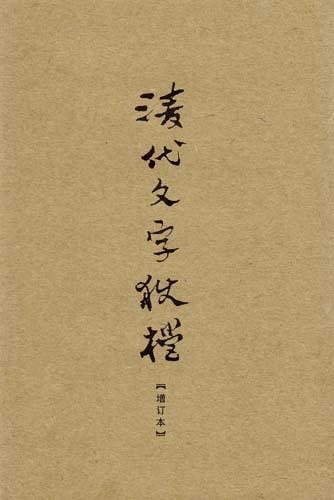 清代文字狱檔
【增订本】